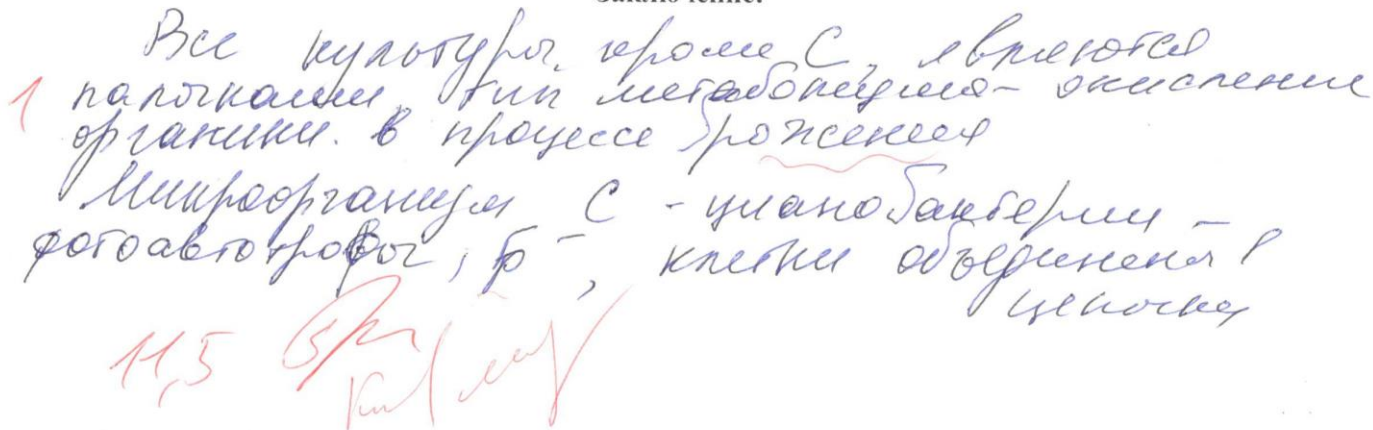 Заключение:
Все культуры, кроме С, являются
1 палочками, тип метаболизма - окисление
органики. в процессе брожения
Микроорганизм С - цианобактерии -
фотоавтотрофы, , клетки объединены в
цепочки
11,5